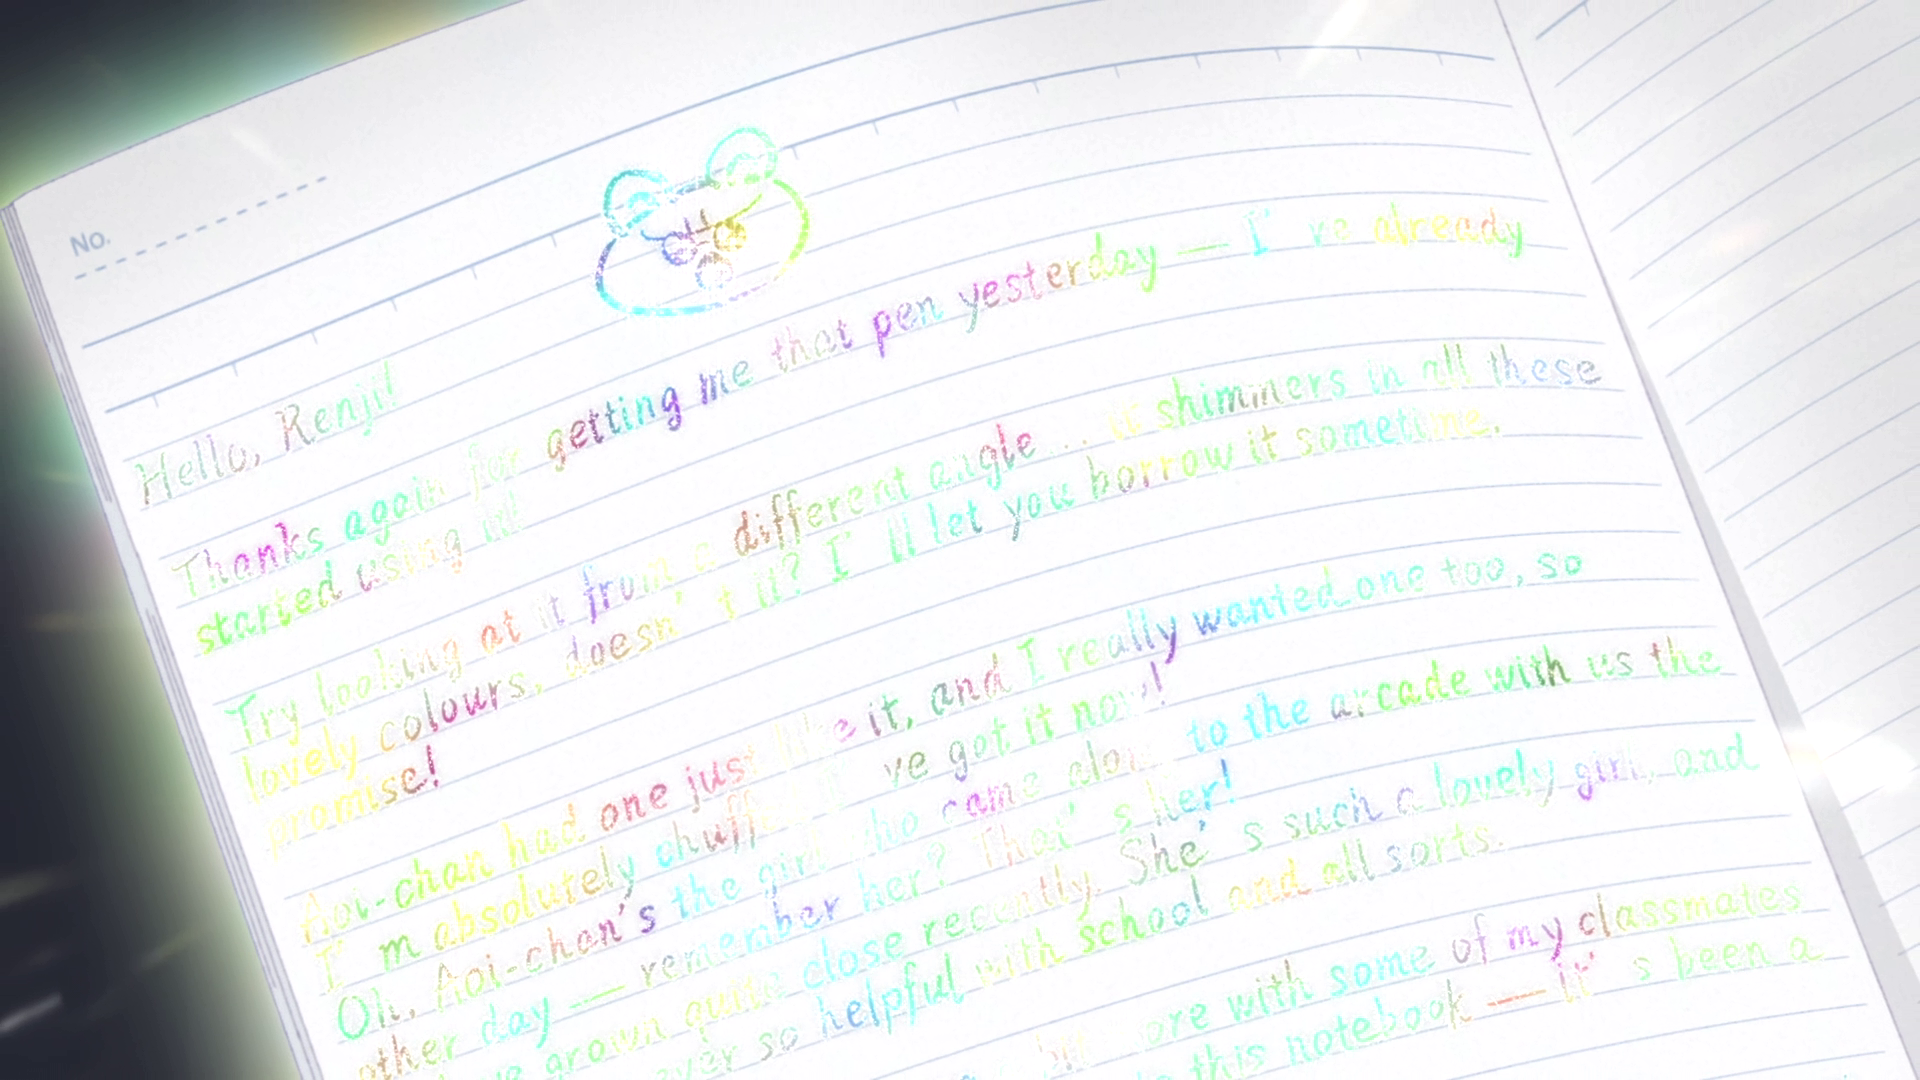 No.
Hello, Renji!
Thanks again for getting me that pen yesterday — I've already
started using it!
Try looking at it from a different angle... it shimmers in all these
lovely colours, doesn't it? I'll let you borrow it sometime,
promise!
Aoi-chan had one just like it, and I really wanted one too, so
I'm absolutely chuffed I've got it now!
Oh, Aoi-chan's the girl who came along to the arcade with us the
other day — remember her? That's her!
grown quite close recently. She's such a lovely girl, and
ever so helpful with school and all sorts.
with some of my classmates
this notebook — it's been a